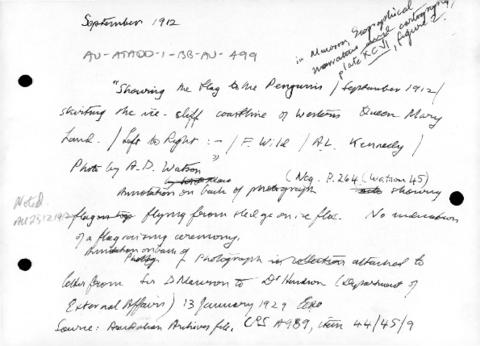 September 1912
in Mawson, Geographical
narrative and cartography,
plate XCVI, figure 2
AU-ATADD-1-BB-AU-499
"Showing the Flag to the Penguins / September 1912 /
skirting the ice-cliff coastline of Western Queen Mary
Land. / Left to Right :- / F. Wild / A.L. Kennedy /
Photo by A.D. Watson"
(Neg. P.264 (Watson 45)
Annotation on back of photograph showing
flag flying from sledge on ice floe. No indication
of a flag raising ceremony.
Annotation on back of
Photograph in collection attached to
letter from Sir D Mawson to Dr Henderson (Department of
External Affairs) 13 January 1929
Source: Australian Archives file, CRS A989, item 44/45/9
Noted